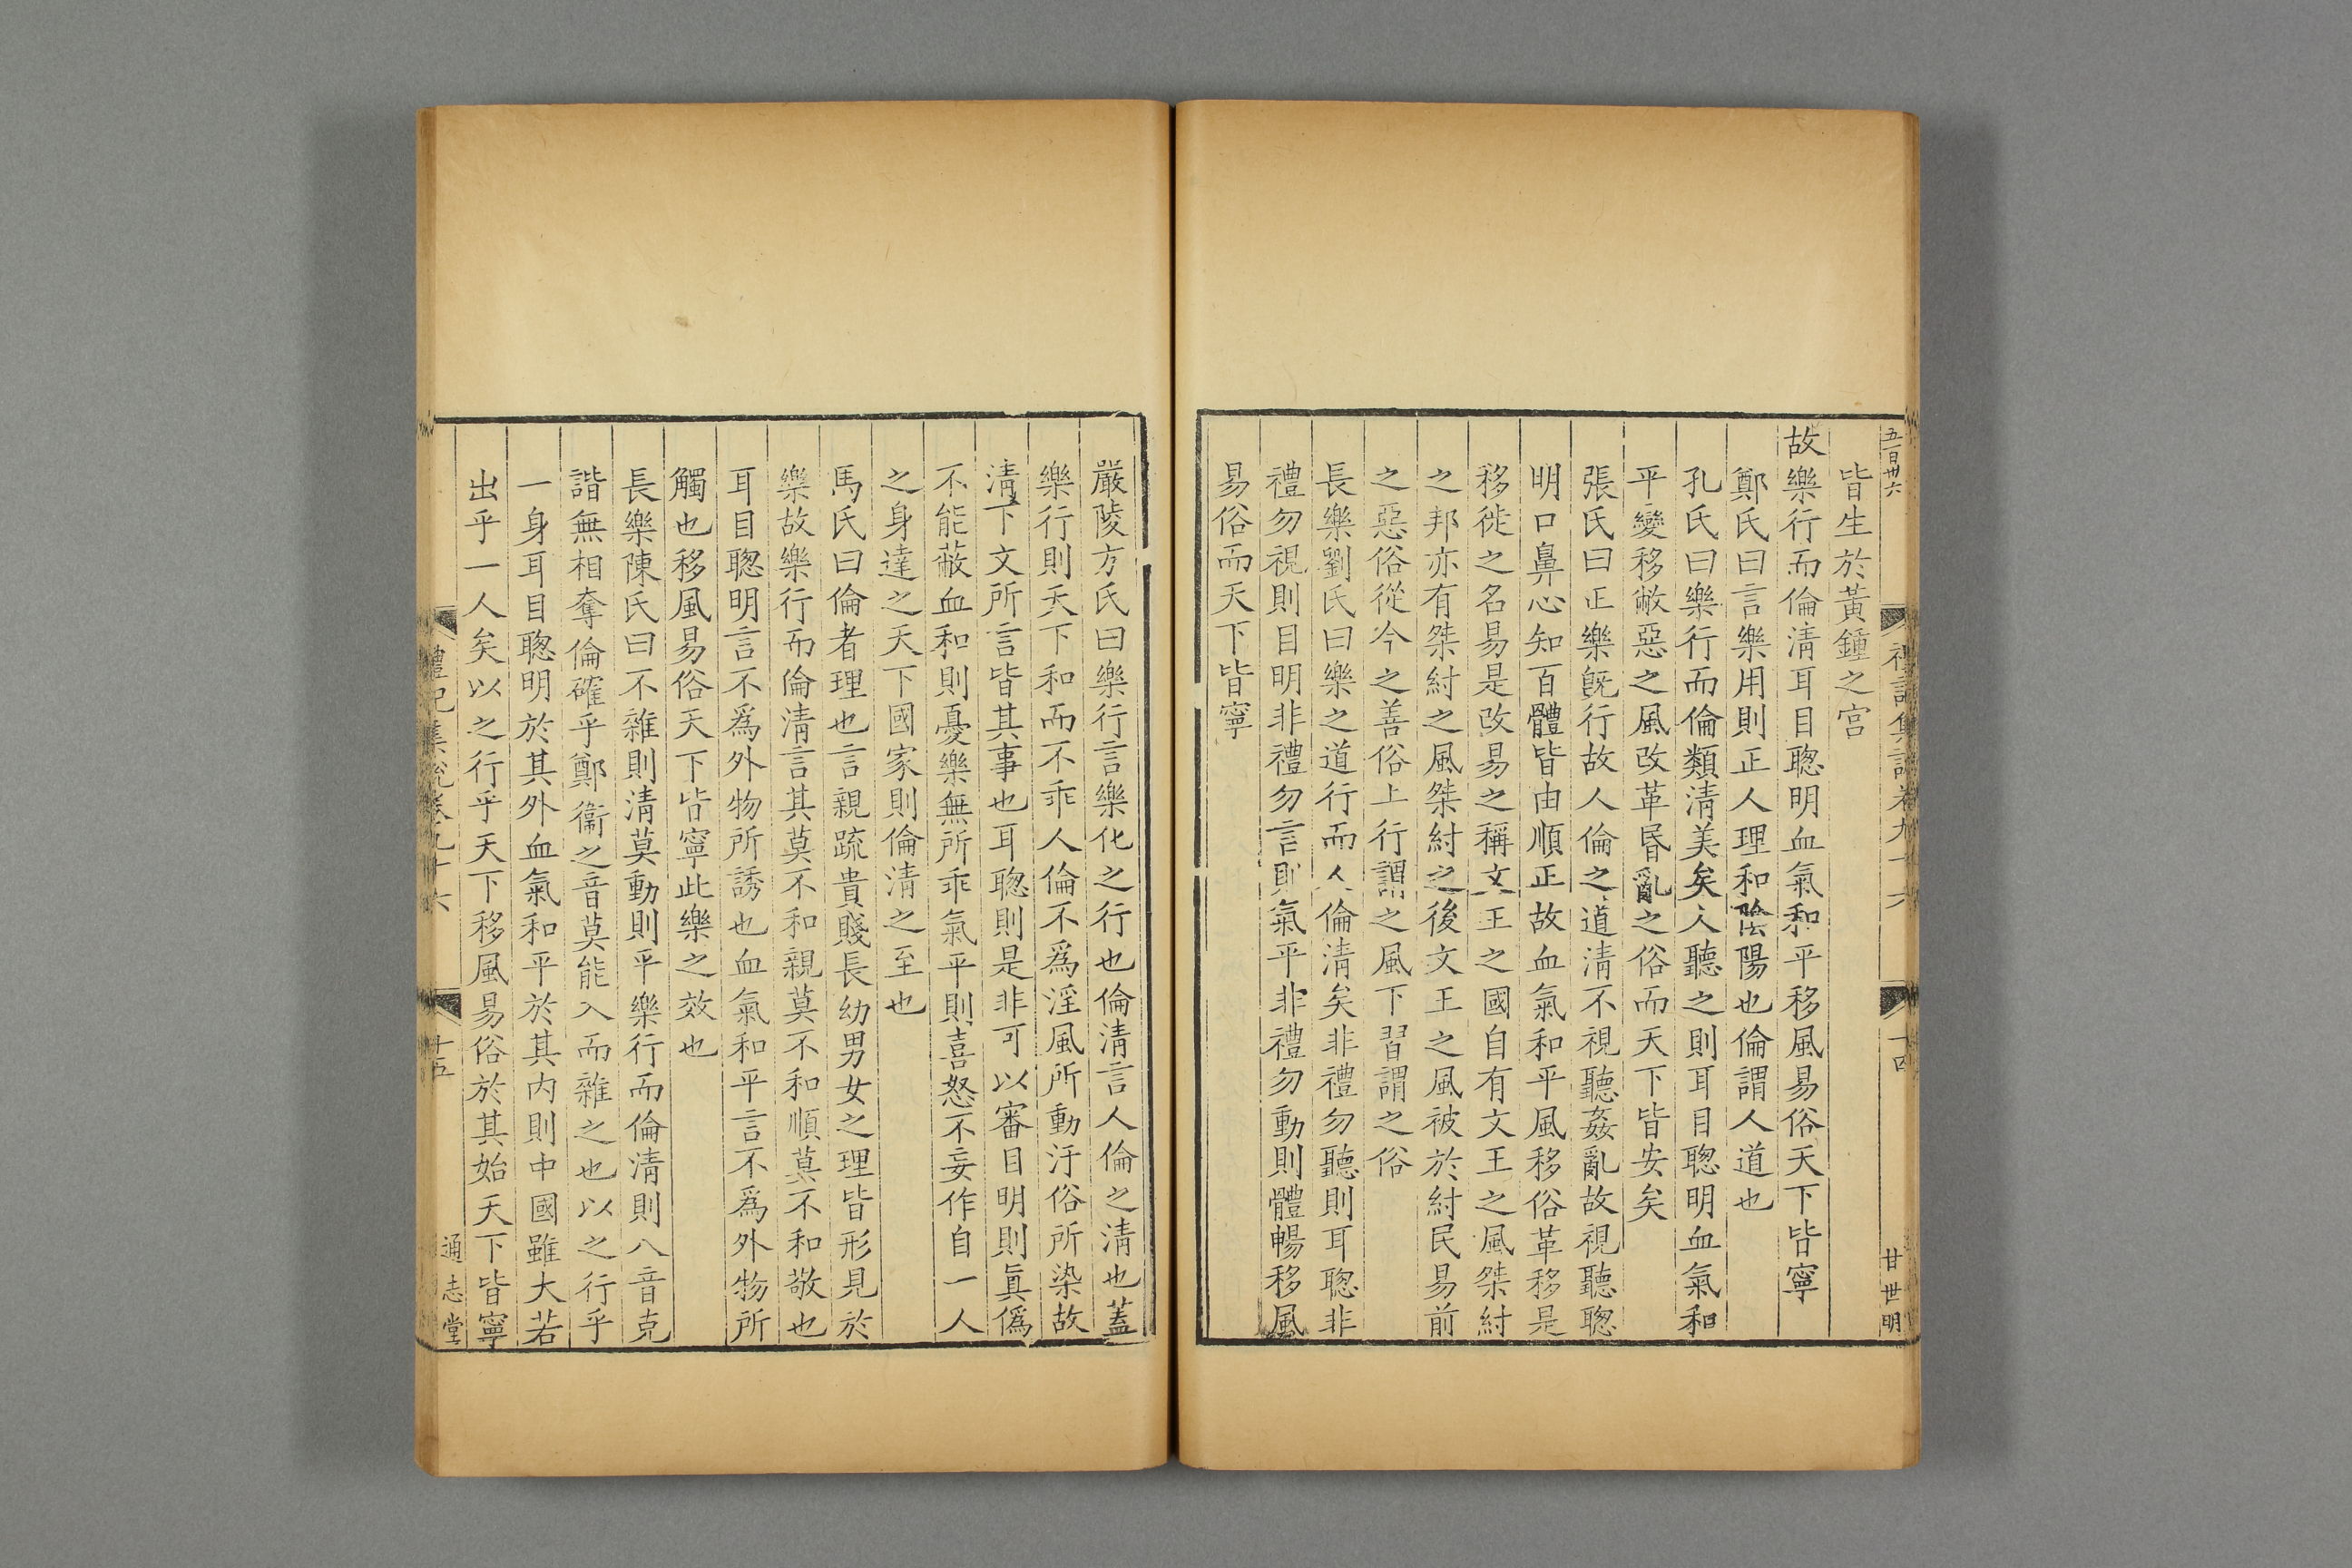 五百卅六
禮記集說卷九十六
十四
甘世明
皆生於黃鍾之宮
故樂行而倫淸耳目聰明血氣和平移風易俗天下皆寧
鄭氏曰言樂用則正人理和陰陽也倫謂人道也
孔氏曰樂行而倫類淸美矣人聽之則耳目聰明血氣和
平變移敝惡之風改革昬亂之俗而天下皆安矣
張氏曰正樂旣行故人倫之道淸不視聽姦亂故視聽聰
明口鼻心知百體皆由順正故血氣和平風移俗革移是
移徙之名易是改易之稱文王之國自有文王之風桀紂
之邦亦有桀紂之風桀紂之後文王之風被於紂民易前
之惡俗從今之善俗上行謂之風下習謂之俗
長樂劉氏曰樂之道行而人倫淸矣非禮勿聽則耳聰非
禮勿視則目明非禮勿言則氣平非禮勿動則體暢移風
易俗而天下皆寧
嚴陵方氏曰樂行言樂化之行也倫淸言人倫之淸也蓋
樂行則天下和而不乖人倫不爲淫風所動汙俗所染故
淸下文所言皆其事也耳聰則是非可以審目明則眞僞
不能蔽血和則憂樂無所乖氣平則喜怒不妄作自一人
之身達之天下國家則倫淸之至也
馬氏曰倫者理也言親疏貴賤長幼男女之理皆形見於
樂故樂行而倫淸言其莫不和親莫不和順莫不和敬也
耳目聰明言不爲外物所誘也血氣和平言不爲外物所
觸也移風易俗天下皆寧此樂之效也
長樂陳氏曰不雜則淸莫動則平樂行而倫淸則八音克
諧無相奪倫確乎鄭衞之音莫能入而雜之也以之行乎
一身耳目聰明於其外血氣和平於其內則中國雖大若
出乎一人矣以之行乎天下移風易俗於其始天下皆寧
禮記集說卷九十六
十五
通志堂